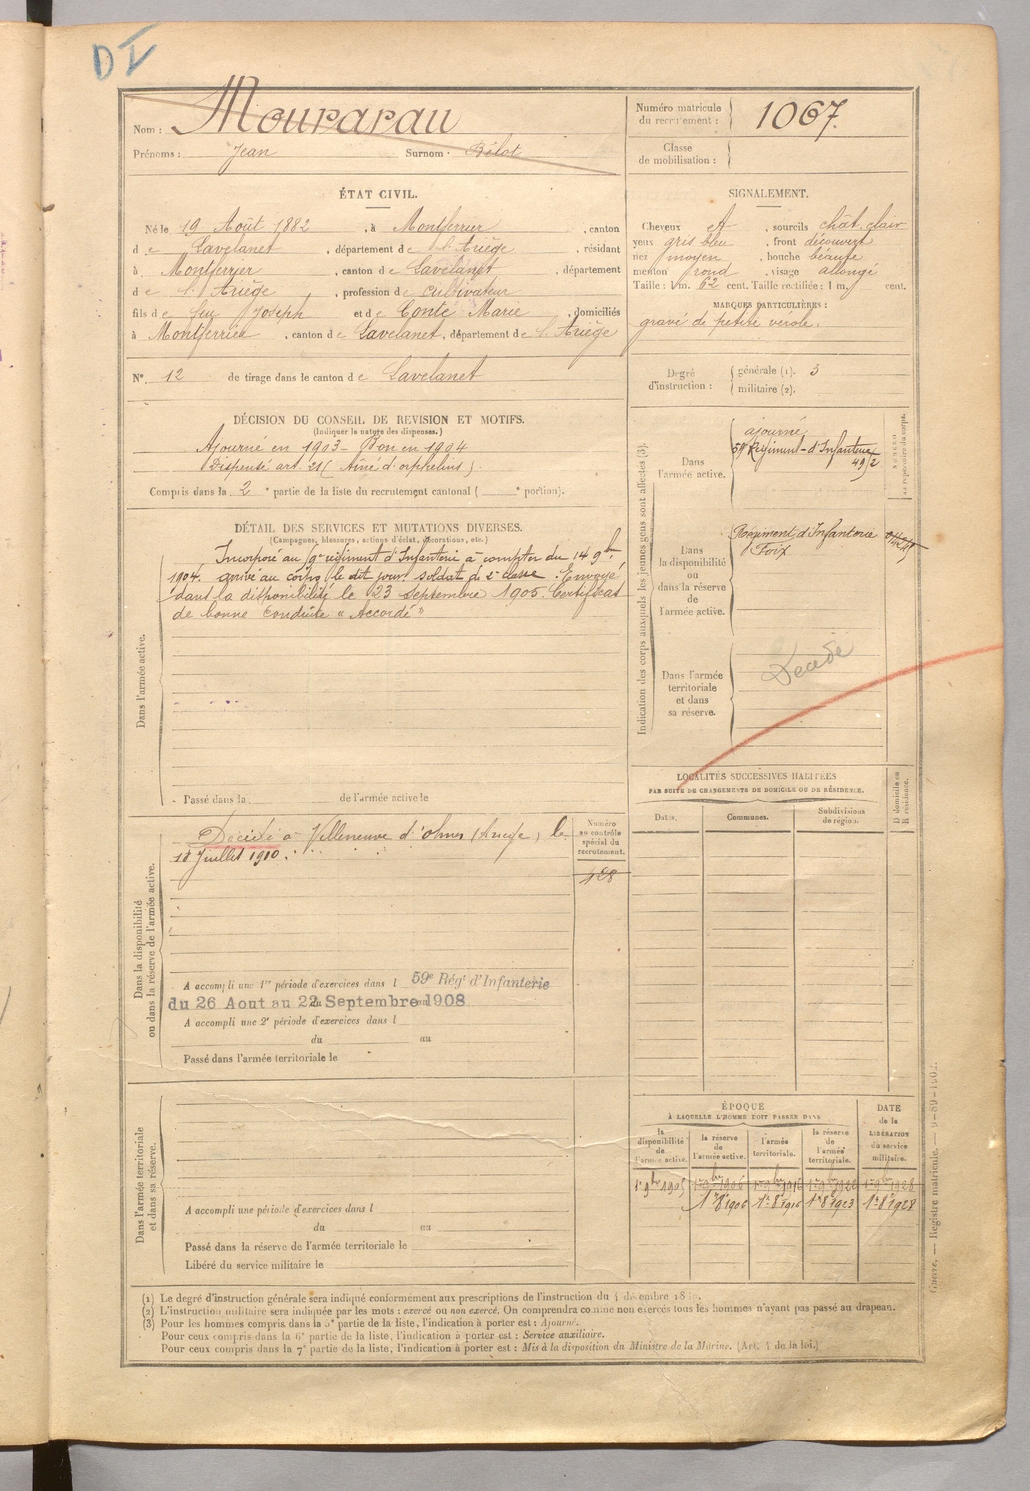 DI
Nom : Mourarau
Prénoms : Jean Surnom : Bélot
Numéro matricule du recrutement : 1067.
Classe de mobilisation :
ÉTAT CIVIL.
Né le 19 Août 1882, à Montferrier, canton
de Lavelanet, département de l'Ariège, résidant
à Montferrier, canton de Lavelanet, département
de l'Ariège, profession de cultivateur
fils de feu Joseph et de Conte Marie, domiciliés
à Montferrier, canton de Lavelanet, département de l'Ariège
N° 12 de tirage dans le canton de Lavelanet
SIGNALEMENT.
Cheveux et, sourcils chât. clair
yeux gris bleu, front découvert
nez moyen, bouche béante
menton rond, visage allongé
Taille : 1 m. 62 cent. Taille rectifiée : 1 m. cent.
MARQUES PARTICULIÈRES :
gravé de petite vérole.
Degré d'instruction : générale (1). 3
militaire (2).
DÉCISION DU CONSEIL DE REVISION ET MOTIFS.
(Indiquer la nature des dispenses.)
Ajourné en 1903 - Bon en 1904
Dispensé art. 21 (Aîné d'orphelins).
Compris dans la 2e partie de la liste du recrutement cantonal ( e portion).
DÉTAIL DES SERVICES ET MUTATIONS DIVERSES.
(Campagnes, blessures, actions d'éclat, décorations, etc.)
Dans l'armée active.
Incorporé au 9e régiment d'Infanterie à compter du 14 9bre
1904. arrivé au corps le dit jour soldat de 2e classe. Envoyé
dans la disponibilité le 23 septembre 1905. Certificat
de bonne conduite « Accordé »
Passé dans la de l'armée active le
Indication des corps auxquels les jeunes gens sont affectés (3).
NUMÉRO au répertoire du corps.
Dans l'armée active.
ajourné
59e Régiment d'Infanterie
Dans la disponibilité ou dans la réserve de l'armée active.
Régiment d'Infanterie
Foix
Dans l'armée territoriale et dans sa réserve.
Décédé
LOCALITÉS SUCCESSIVES HABITÉES
PAR SUITE DE CHANGEMENTS DE DOMICILE OU DE RÉSIDENCE.
D domicile ou R résidence.
Dates. Communes. Subdivisions de région.
Dans la disponibilité ou dans la réserve de l'armée active.
Numéro au contrôle spécial du recrutement.
Décédé à Villeneuve d'Olmes (Ariège) le
18 Juillet 1910.
128
A accompli une 1re période d'exercices dans l 59e Régt d'Infanterie
du 26 Aout au 22 Septembre 1908
A accompli une 2e période d'exercices dans l
du au
Passé dans l'armée territoriale le
Dans l'armée territoriale et dans sa réserve.
A accompli une période d'exercices dans l
du au
Passé dans la réserve de l'armée territoriale le
Libéré du service militaire le
ÉPOQUE
À LAQUELLE L'HOMME DOIT PASSER DANS
DATE de la LIBÉRATION du service militaire.
la disponibilité de l'armée active. la réserve de l'armée active. l'armée territoriale. la réserve de l'armée territoriale.
1er 9bre 1905 1er 9bre 1906 1er 9bre 1916 1er 9bre 1922 1er 9bre 1928
1er 8e 1906 1er 8e 1916 1er 8e 1923 1er 8e 1928
(1) Le degré d'instruction générale sera indiqué conformément aux prescriptions de l'instruction du 4 décembre
(2) L'instruction militaire sera indiquée par les mots : exercé ou non exercé. On comprendra comme non exercés tous les hommes n'ayant pas passé au drapeau.
(3) Pour les hommes compris dans la 5e partie de la liste, l'indication à porter est : Ajourné.
Pour ceux compris dans la 6e partie de la liste, l'indication à porter est : Service auxiliaire.
Pour ceux compris dans la 7e partie de la liste, l'indication à porter est : Mis à la disposition du Ministre de la Marine. (Art. 4 de la loi.)
Guerre. — Registre matricule.